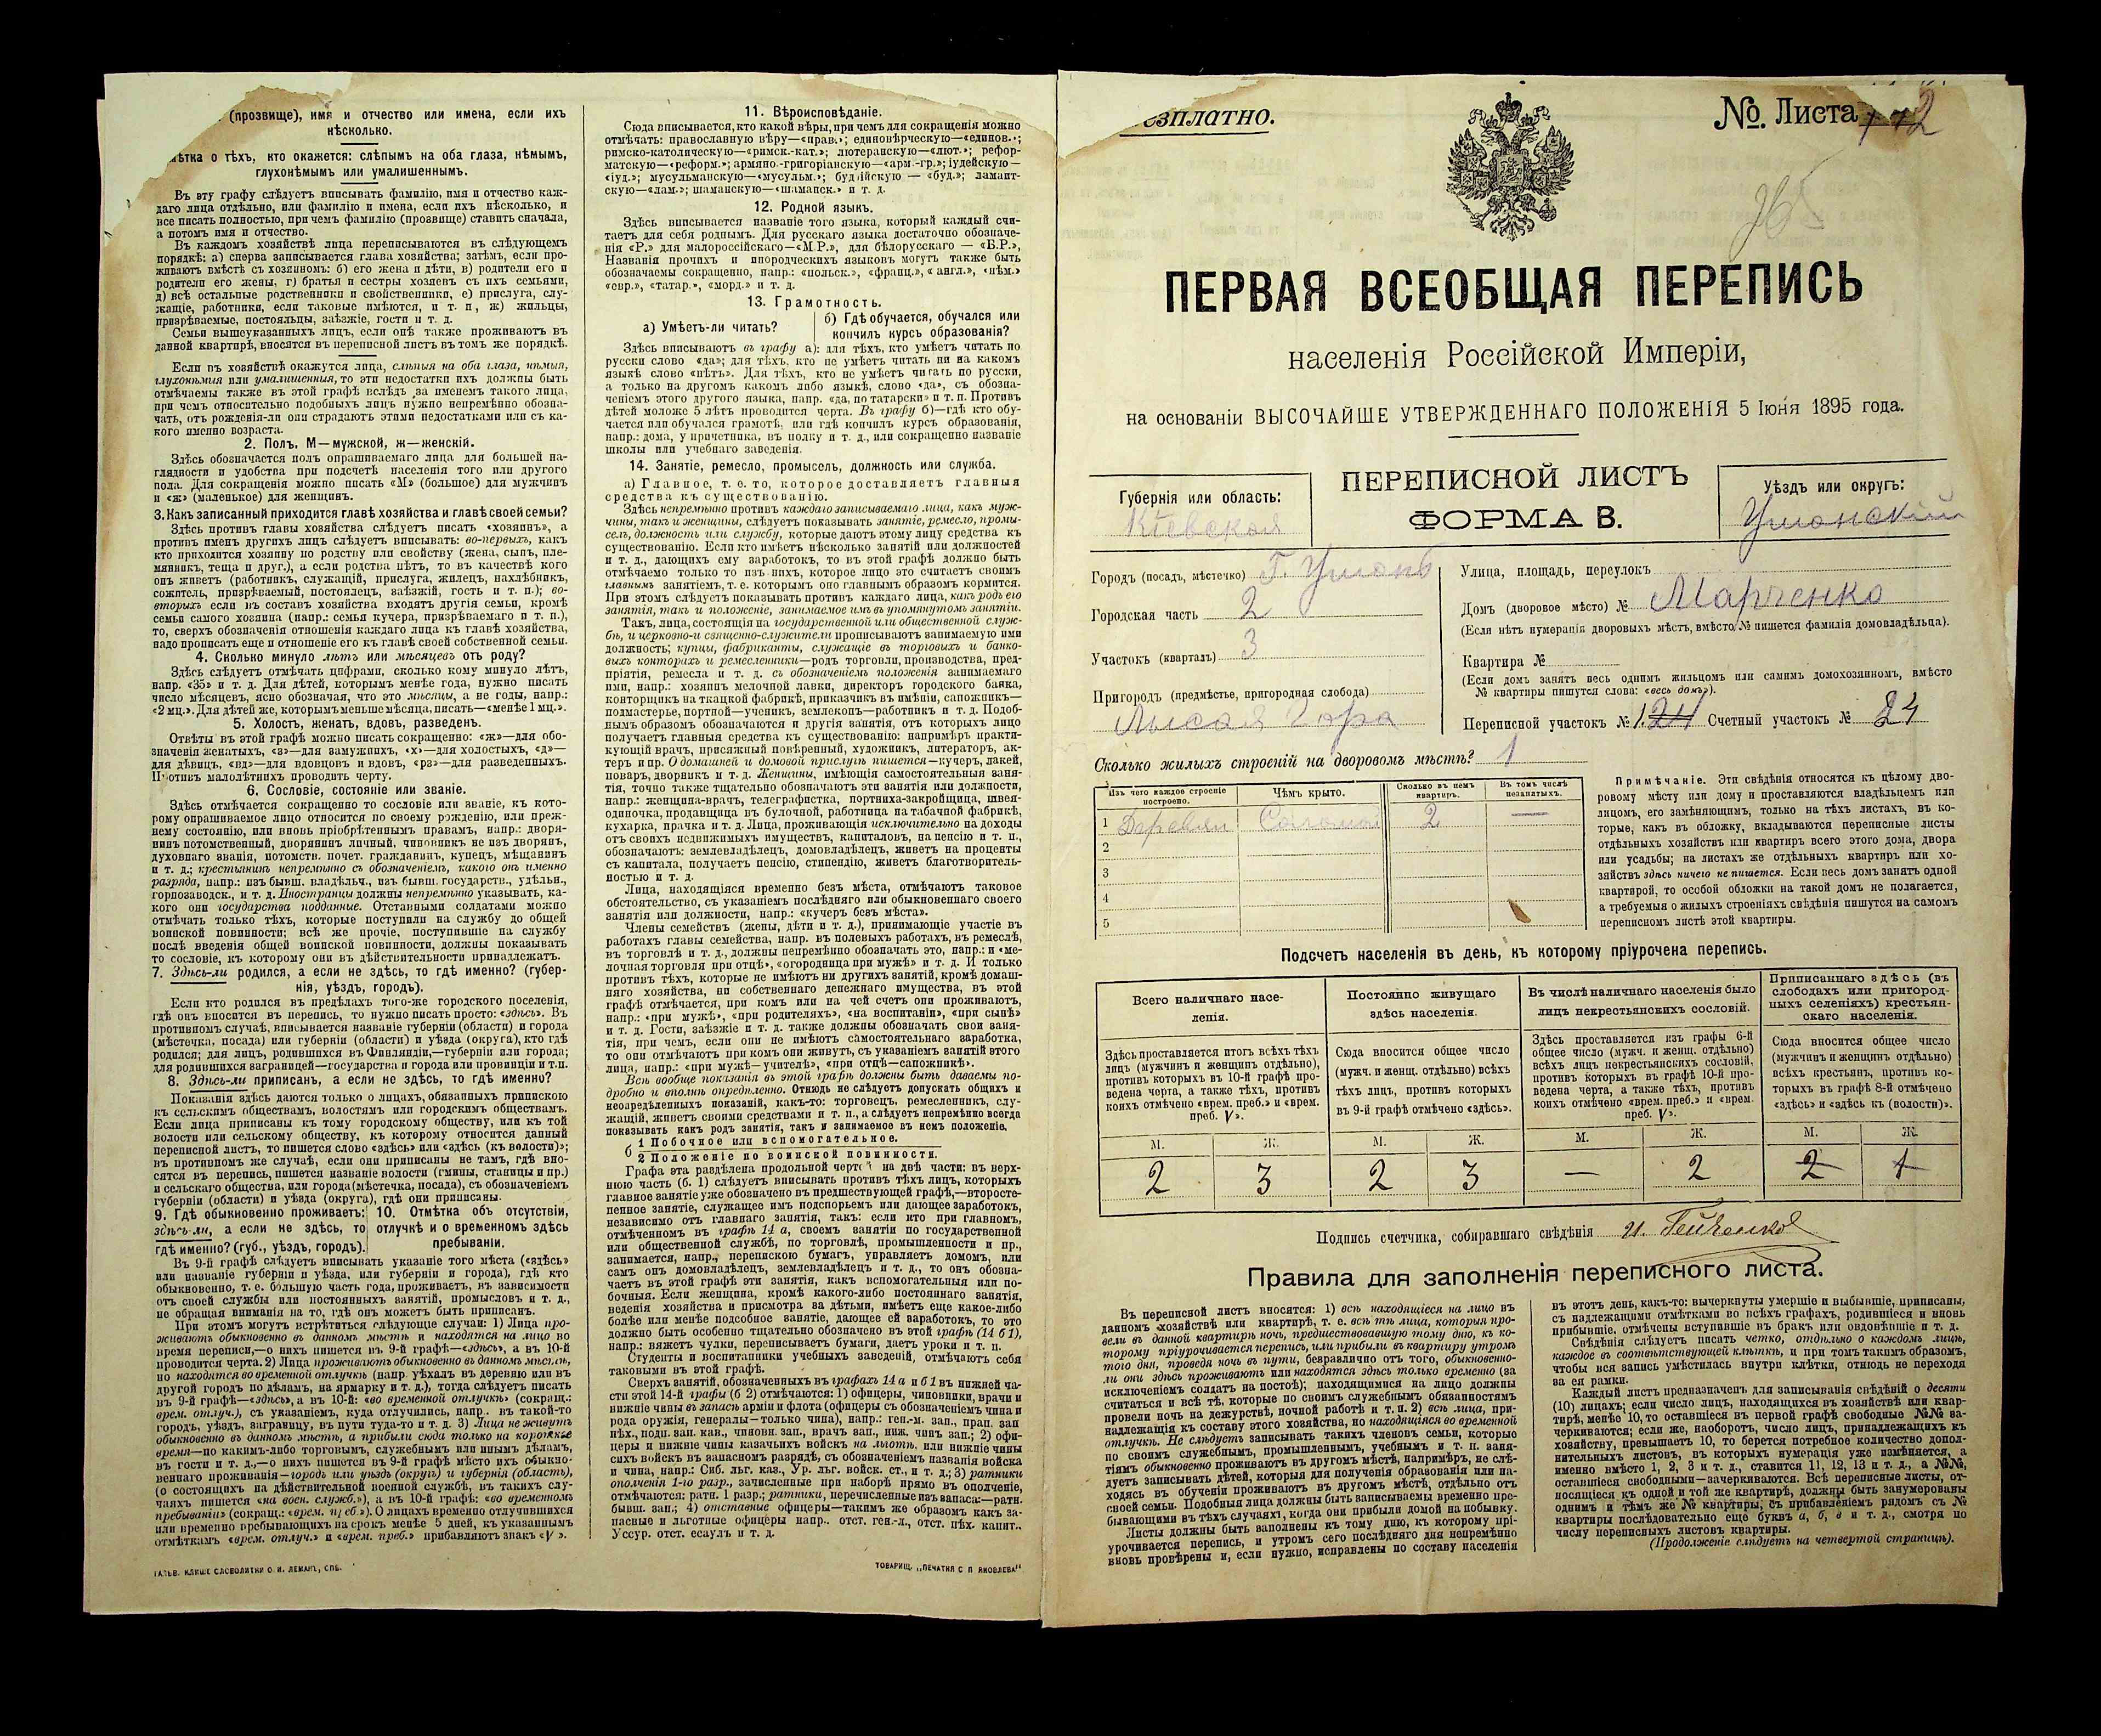 (прозвище), имя и отчество или имена, если ихъ
нѣсколько.
о тѣхъ, кто окажется: слѣпымъ на оба глаза, нѣмымъ,
глухонѣмымъ или умалишеннымъ.
Въ эту графу слѣдуетъ вписывать фамилію, имя и отчество каж-
даго лица отдѣльно, или фамилію и имена, если ихъ нѣсколько, и
все писать полностью, при чемъ фамилію (прозвище) ставить сначала,
а потомъ имя и отчество.
Въ каждомъ хозяйствѣ лица переписываются въ слѣдующемъ
порядкѣ: а) сперва записывается глава хозяйства; затѣмъ, если про-
живаютъ вмѣстѣ съ хозяиномъ: б) его жена и дѣти, в) родители его и
родители его жены, г) братья и сестры хозяевъ съ ихъ семьями,
д) всѣ остальные родственники и свойственники, е) прислуга, слу-
жащіе, работники, если таковые имѣются, и т. п, ж) жильцы,
призрѣваемые, постояльцы, заѣзжіе, гости и т. д.
Семьи вышеуказанныхъ лицъ, если онѣ также проживаютъ въ
данной квартирѣ, вносятся въ переписной листъ въ томъ же порядкѣ.
Если въ хозяйствѣ окажутся лица, слѣпыя на оба глаза, нѣмыя,
глухонѣмыя или умалишенныя, то эти недостатки ихъ должны быть
отмѣчаемы также въ этой графѣ вслѣдъ за именемъ такого лица,
при чемъ относительно подобныхъ лицъ нужно непремѣнно обозна-
чать, отъ рожденія-ли они страдаютъ этими недостатками или съ ка-
кого именно возраста.
2. Полъ. М—мужской, ж—женскій.
Здѣсь обозначается полъ опрашиваемаго лица для большей на-
глядности и удобства при подсчетѣ населенія того или другого
пола. Для сокращенія можно писать «М» (большое) для мужчинъ
и «ж» (маленькое) для женщинъ.
3. Какъ записанный приходится главѣ хозяйства и главѣ своей семьи?
Здѣсь противъ главы хозяйства слѣдуетъ писать «хозяинъ», а
противъ именъ другихъ лицъ слѣдуетъ вписывать: во-первыхъ, какъ
кто приходится хозяину по родству или свойству (жена, сынъ, пле-
мянникъ, теща и друг.), а если родства нѣтъ, то въ качествѣ кого
онъ живетъ (работникъ, служащій, прислуга, жилецъ, нахлѣбникъ,
сожитель, призрѣваемый, постоялецъ, заѣзжій, гость и т. п.); во-
вторыхъ если въ составъ хозяйства входятъ другія семьи, кромѣ
семьи самого хозяина (напр.: семья кучера, призрѣваемаго и т. п.),
то, сверхъ обозначенія отношенія каждаго лица къ главѣ хозяйства,
надо прописать еще и отношеніе его къ главѣ своей собственной семьи.
4. Сколько минуло лѣтъ или мѣсяцевъ отъ роду?
Здѣсь слѣдуетъ отмѣчать цифрами, сколько кому минуло лѣтъ,
напр. «35» и т. д. Для дѣтей, которымъ менѣе года, нужно писать
число мѣсяцевъ, ясно обозначая, что это мѣсяцы, а не годы, напр.:
«2 мц.». Для дѣтей же, которымъ меньше мѣсяца, писать—«менѣе 1 мц.».
5. Холостъ, женатъ, вдовъ, разведенъ.
Отвѣты въ этой графѣ можно писать сокращенно: «ж»—для обо-
значенія женатыхъ, «з»—для замужнихъ, «х»—для холостыхъ, «д»—
для дѣвицъ, «вд»—для вдовцовъ и вдовъ, «рз»—для разведенныхъ.
Противъ малолѣтнихъ проводить черту.
6. Сословіе, состояніе или званіе.
Здѣсь отмѣчается сокращенно то сословіе или званіе, къ кото-
рому опрашиваемое лицо относится по своему рожденію, или преж-
нему состоянію, или вновь пріобрѣтеннымъ правамъ, напр.: дворя-
нинъ потомственный, дворянинъ личный, чиновникъ не изъ дворянъ,
духовнаго званія, потомств. почет. гражданинъ, купецъ, мѣщанинъ
и т. д.; крестьянинъ непремѣнно съ обозначеніемъ, какого онъ именно
разряда, напр.: изъ бывш. владѣльч., изъ бывш. государств., удѣльн.,
горнозаводск., и т. д. Иностранцы должны непремѣнно указывать, ка-
кого они государства подданные. Отставными солдатами можно
отмѣчать только тѣхъ, которые поступили на службу до общей
воинской повинности; всѣ же прочіе, поступившіе на службу
послѣ введенія общей воинской повинности, должны показывать
то сословіе, къ которому они въ дѣйствительности принадлежатъ.
7. Здѣсь-ли родился, а если не здѣсь, то гдѣ именно? (губер-
нія, уѣздъ, городъ).
Если кто родился въ предѣлахъ того-же городского поселенія,
гдѣ онъ вносится въ перепись, то нужно писать просто: «здѣсь». Въ
противномъ случаѣ, вписывается названіе губерніи (области) и города
(мѣстечка, посада) или губерніи (области) и уѣзда (округа), кто гдѣ
родился; для лицъ, родившихся въ Финляндіи,—губерніи или города;
для родившихся заграницей—государства и города или провинціи и т.п.
8. Здѣсь-ли приписанъ, а если не здѣсь, то гдѣ именно?
Показанія здѣсь даются только о лицахъ, обязанныхъ припискою
къ сельскимъ обществамъ, волостямъ или городскимъ обществамъ.
Если лица приписаны къ тому городскому обществу, или къ той
волости или сельскому обществу, къ которому относится данный
переписной листъ, то пишется слово «здѣсь» или «здѣсь (къ волости)»;
въ противномъ же случаѣ, если они приписаны не тамъ, гдѣ вно-
сятся въ перепись, пишется названіе волости (гмины, станицы и пр.)
и сельскаго общества, или города (мѣстечка, посада), съ обозначеніемъ
губерніи (области) и уѣзда (округа), гдѣ они приписаны.
9. Гдѣ обыкновенно проживаетъ:
здѣсь-ли, а если не здѣсь, то
гдѣ именно? (губ., уѣздъ, городъ).
10. Отмѣтка объ отсутствіи,
отлучкѣ и о временномъ здѣсь
пребываніи.
Въ 9-й графѣ слѣдуетъ вписывать указаніе того мѣста («здѣсь»
или названіе губерніи и уѣзда, или губерніи и города), гдѣ кто
обыкновенно, т. е. большую часть года, проживаетъ, въ зависимости
отъ своей службы или постоянныхъ занятій, промысловъ и т. д.,
не обращая вниманія на то, гдѣ онъ можетъ быть приписанъ.
При этомъ могутъ встрѣтиться слѣдующіе случаи: 1) Лица про-
живаютъ обыкновенно въ данномъ мѣстѣ и находятся на лицо во
время переписи,—о нихъ пишется въ 9-й графѣ—«здѣсь», а въ 10-й
проводится черта. 2) Лица проживаютъ обыкновенно въ данномъ мѣстѣ,
но находятся во временной отлучкѣ (напр. уѣхалъ въ деревню или въ
другой городъ по дѣламъ, на ярмарку и т. д.), тогда слѣдуетъ писать
въ 9-й графѣ—«здѣсь», а въ 10-й: «во временной отлучкѣ» (сокращ.:
врем. отлуч.), съ указаніемъ, куда отлучились, напр.. въ такой-то
городъ, уѣздъ, заграницу, въ пути туда-то и т. д. 3) Лица не живутъ
обыкновенно въ данномъ мѣстѣ, а прибыли сюда только на короткое
время—по какимъ-либо торговымъ, служебнымъ или инымъ дѣламъ,
въ гости и т. д.,—о нихъ пишется въ 9-й графѣ мѣсто ихъ обыкно-
веннаго проживанія—городъ или уѣздъ (округъ) и губернія (область),
(о состоящихъ на дѣйствительной военной службѣ, въ такихъ слу-
чаяхъ пишется «на воен. служб.»), а въ 10-й графѣ: «во временномъ
пребываніи» (сокращ.: «врем. преб.»). О лицахъ временно отлучившихся
или временно пребывающихъ на срокъ менѣе 5 дней, къ указаннымъ
отмѣткамъ «врем. отлуч.» и «врем. преб.» прибавляютъ знакъ «V».
11. Вѣроисповѣданіе.
Сюда вписывается, кто какой вѣры, при чемъ для сокращенія можно
отмѣчать: православную вѣру—«прав.»; единовѣрческую—«единов.»;
римско-католическую—«римск.-кат.»; лютеранскую—«лют.»; рефор-
матскую—«реформ.»; армяно-григоріанскую—«арм.-гр.»; іудейскую—
«іуд.»; мусульманскую—«мусульм.»; буддійскую — «буд.»; ламаит-
скую—«лам.»; шаманскую—«шаманск.» и т. д.
12. Родной языкъ.
Здѣсь вписывается названіе того языка, который каждый счи-
таетъ для себя роднымъ. Для русскаго языка достаточно обозначе-
нія «Р.» для малороссійскаго—«М.Р.», для бѣлорусскаго — «Б.Р.»,
Названія прочихъ и инородческихъ языковъ могутъ также быть
обозначаемы сокращенно, напр.: «польск.», «франц.», «англ.», «нѣм.»
«евр.», «татар.», «морд.» и т. д.
13. Грамотность.
а) Умѣетъ-ли читать?
б) Гдѣ обучается, обучался или
кончилъ курсъ образованія?
Здѣсь вписываютъ въ графу а): для тѣхъ, кто умѣетъ читать по
русски слово «да»; для тѣхъ, кто не умѣетъ читать ни на какомъ
языкѣ слово «нѣтъ». Для тѣхъ, кто не умѣетъ читать по русски,
а только на другомъ какомъ либо языкѣ, слово «да», съ обозна-
ченіемъ этого другого языка, напр. «да, по татарски» и т. п. Противъ
дѣтей моложе 5 лѣтъ проводится черта. Въ графу б)—гдѣ кто обу-
чается или обучался грамотѣ, или гдѣ кончилъ курсъ образованія,
напр.: дома, у причетника, въ полку и т. д., или сокращенно названіе
школы или учебнаго заведенія.
14. Занятіе, ремесло, промыселъ, должность или служба.
а) Главное, т. е. то, которое доставляетъ главныя
средства къ существованію.
Здѣсь непремѣнно противъ каждаго записываемаго лица, какъ муж-
чины, такъ и женщины, слѣдуетъ показывать занятіе, ремесло, промы-
селъ, должность или службу, которые даютъ этому лицу средства къ
существованію. Если кто имѣетъ нѣсколько занятій или должностей
и т. д., дающихъ ему заработокъ, то въ этой графѣ должно быть
отмѣчаемо только то изъ нихъ, которое лицо это считаетъ своимъ
главнымъ занятіемъ, т. е. которымъ оно главнымъ образомъ кормится.
При этомъ слѣдуетъ показывать противъ каждаго лица, какъ родъ его
занятія, такъ и положеніе, занимаемое имъ въ упомянутомъ занятіи.
Такъ, лица, состоящія на государственной или общественной служ-
бѣ, и церковно-и священно-служители прописываютъ занимаемую ими
должность; купцы, фабриканты, служащіе въ торговыхъ и банко-
выхъ конторахъ и ремесленники—родъ торговли, производства, пред-
пріятія, ремесла и т. д. съ обозначеніемъ положенія занимаемаго
ими, напр.: хозяинъ мелочной лавки, директоръ городского банка,
конторщикъ на ткацкой фабрикѣ, приказчикъ въ имѣніи, сапожникъ—
подмастерье, портной—ученикъ, землекопъ—работникъ и т. д. Подоб-
нымъ образомъ обозначаются и другія занятія, отъ которыхъ лицо
получаетъ главныя средства къ существованію: напримѣръ практи-
кующій врачъ, присяжный повѣренный, художникъ, литераторъ, ак-
теръ и пр. О домашней и домовой прислугѣ пишется—кучеръ, лакей,
поваръ, дворникъ и т. д. Женщины, имѣющія самостоятельныя заня-
тія, точно также тщательно обозначаютъ эти занятія или должности,
напр.: женщина-врачъ, телеграфистка, портниха-закройщица, швея-
одиночка, продавщица въ булочной, работница на табачной фабрикѣ,
кухарка, прачка и т. д. Лица, проживающія исключительно на доходы
отъ своихъ недвижимыхъ имуществъ, капиталовъ, на пенсію и т. п.,
обозначаютъ: землевладѣлецъ, домовладѣлецъ, живетъ на проценты
съ капитала, получаетъ пенсію, стипендію, живетъ благотворитель-
ностью и т. д.
Лица, находящіяся временно безъ мѣста, отмѣчаютъ таковое
обстоятельство, съ указаніемъ послѣдняго или обыкновеннаго своего
занятія или должности, напр.: «кучеръ безъ мѣста».
Члены семействъ (жены, дѣти и т. д.), принимающіе участіе въ
работахъ главы семейства, напр. въ полевыхъ работахъ, въ ремеслѣ,
въ торговлѣ и т. д., должны непремѣнно обозначать это, напр.: и «ме-
лочная торговля при отцѣ», «огородница при мужѣ» и т. д. И только
противъ тѣхъ, которые не имѣютъ ни другихъ занятій, кромѣ домаш-
няго хозяйства, ни собственнаго денежнаго имущества, въ этой
графѣ отмѣчается, при комъ или на чей счетъ они проживаютъ,
напр.: «при мужѣ», «при родителяхъ», «на воспитаніи», «при сынѣ»
и т. д. Гости, заѣзжіе и т. д. также должны обозначать свои заня-
тія, при чемъ, если они не имѣютъ самостоятельнаго заработка,
то они отмѣчаютъ при комъ они живутъ, съ указаніемъ занятій этого
лица, напр.: «при мужѣ—учителѣ», «при отцѣ—сапожникѣ».
Всѣ вообще показанія въ этой графѣ должны быть даваемы по-
дробно и вполнѣ опредѣленно. Отнюдь не слѣдуетъ допускать общихъ и
неопредѣленныхъ показаній, какъ-то: торговецъ, ремесленникъ, слу-
жащій, живетъ своими средствами и т. п., а слѣдуетъ непремѣнно всегда
показывать какъ родъ занятія, такъ и занимаемое въ немъ положеніе.
б 1 Побочное или вспомогательное.
2 Положеніе по воинской повинности.
Графа эта раздѣлена продольной чертой на двѣ части: въ верх-
нюю часть (б. 1) слѣдуетъ вписывать противъ тѣхъ лицъ, которыхъ
главное занятіе уже обозначено въ предшествующей графѣ,—второсте-
пенное занятіе, служащее имъ подспорьемъ или дающее заработокъ,
независимо отъ главнаго занятія, такъ: если кто при главномъ,
отмѣченномъ въ графѣ 14 а, своемъ занятіи по государственной
или общественной службѣ, по торговлѣ, промышленности и пр.,
занимается, напр., перепискою бумагъ, управляетъ домомъ, или
самъ онъ домовладѣлецъ, землевладѣлецъ и т. д., то онъ обозна-
чаетъ въ этой графѣ эти занятія, какъ вспомогательныя или по-
бочныя. Если женщина, кромѣ какого-либо постояннаго занятія,
веденія хозяйства и присмотра за дѣтьми, имѣетъ еще какое-либо
болѣе или менѣе подсобное занятіе, дающее ей заработокъ, то это
должно быть особенно тщательно обозначено въ этой графѣ (14 б 1),
напр.: вяжетъ чулки, переписываетъ бумаги, даетъ уроки и т. п.
Студенты и воспитанники учебныхъ заведеній, отмѣчаютъ себя
таковыми въ этой графѣ.
Сверхъ занятій, обозначенныхъ въ графахъ 14 а и б 1 въ нижней ча-
сти этой 14-й графы (б 2) отмѣчаются: 1) офицеры, чиновники, врачи и
нижніе чины въ запасѣ арміи и флота (офицеры съ обозначеніемъ чина и
рода оружія, генералы—только чина), напр.: ген.-м. зап., прап. зап
пѣх., подп. зап. кав., чиновн. зап., врачъ зап., ниж. чинъ зап.; 2) офи-
церы и нижніе чины казачьихъ войскъ на льготѣ. или нижніе чины
сихъ войскъ въ запасномъ разрядѣ, съ обозначеніемъ названія войска
и чина, напр.: Сиб. льг. каз., Ур. льг. войск. ст., и т. д.; 3) ратники
ополченія 1-го разр., зачисленные при наборѣ прямо въ ополченіе,
отмѣчаются: ратн. 1 разр.; ратники, перечисленные изъ запаса:—ратн.
бывш. зап.; 4) отставные офицеры—такимъ же образомъ какъ за-
пасные и льготные офицеры напр.. отст. ген.-л., отст. пѣх. капит..
Уссур. отст. есаулъ и т. д.
ГАЛЬВ. КЛИШЕ СЛОВОЛИТНИ О. И. ЛЕМАНЪ, СПБ.
ТОВАРИЩ. „ПЕЧАТНЯ С П ЯКОВЛЕВА"
езплатно.
№. Листа 2
ПЕРВАЯ ВСЕОБЩАЯ ПЕРЕПИСЬ
населенія Россійской Имперіи,
на основаніи ВЫСОЧАЙШЕ УТВЕРЖДЕННАГО ПОЛОЖЕНІЯ 5 Іюня 1895 года.
Губернія или область:
Кіевская
ПЕРЕПИСНОЙ ЛИСТЪ
ФОРМА В.
Уѣздъ или округъ:
Уманскій
Городъ (посадъ, мѣстечко) Г. Умань
Городская часть 2
Участокъ (кварталъ) 3
Пригородъ (предмѣстье, пригородная слобода)
Лысая Гора
Улица, площадь, переулокъ
Домъ (дворовое мѣсто) № Марченко
(Если нѣтъ нумераціи дворовыхъ мѣстъ, вмѣсто № пишется фамилія домовладѣльца).
Квартира №
(Если домъ занятъ весь однимъ жильцомъ или самимъ домохозяиномъ, вмѣсто
№ квартиры пишутся слова: «весь домъ»).
Переписной участокъ № 1. 24 Счетный участокъ № 24
Сколько жилыхъ строеній на дворовомъ мѣстѣ? 1
Изъ чего каждое строеніе построено.
Чѣмъ крыто.
Сколько въ немъ квартиръ.
Въ томъ числѣ незанятыхъ.
1 Деревян Соломой 2 —
2
3
4
5
Примѣчаніе. Эти свѣдѣнія относятся къ цѣлому дво-
ровому мѣсту или дому и проставляются владѣльцемъ или
лицомъ, его замѣняющимъ, только на тѣхъ листахъ, въ ко-
торые, какъ въ обложку, вкладываются переписные листы
отдѣльныхъ хозяйствъ или квартиръ всего этого дома, двора
или усадьбы; на листахъ же отдѣльныхъ квартиръ или хо-
зяйствъ здѣсь ничего не пишется. Если весь домъ занятъ одной
квартирой, то особой обложки на такой домъ не полагается,
а требуемыя о жилыхъ строеніяхъ свѣдѣнія пишутся на самомъ
переписномъ листѣ этой квартиры.
Подсчетъ населенія въ день, къ которому пріурочена перепись.
Всего наличнаго насе-
ленія.
Постоянно живущаго
здѣсь населенія.
Въ числѣ наличнаго населенія было
лицъ некрестьянскихъ сословій.
Приписаннаго здѣсь (въ
слободахъ или пригород-
ныхъ селеніяхъ) крестьян-
скаго населенія.
Здѣсь проставляется итогъ всѣхъ тѣхъ
лицъ (мужчинъ и женщинъ отдѣльно),
противъ которыхъ въ 10-й графѣ про-
ведена черта, а также тѣхъ, противъ
коихъ отмѣчено «врем. преб.» и «врем.
преб. V».
Сюда вносится общее число
(мужч. и женщ. отдѣльно) всѣхъ
тѣхъ лицъ, противъ которыхъ
въ 9-й графѣ отмѣчено «здѣсь».
Здѣсь проставляется изъ графы 6-й
общее число (мужч. и женщ. отдѣльно)
всѣхъ лицъ некрестьянскихъ сословій,
противъ которыхъ въ графѣ 10-й про-
ведена черта, а также тѣхъ, противъ
коихъ отмѣчено «врем. преб.» и «врем.
преб. V».
Сюда вносится общее число
(мужчинъ и женщинъ отдѣльно)
всѣхъ крестьянъ, противъ ко-
торыхъ въ графѣ 8-й отмѣчено
«здѣсь» и «здѣсь къ (волости)».
М. Ж. М. Ж. М. Ж. М. Ж.
2 3 2 3 — 2 2 1
Подпись счетчика, собиравшаго свѣдѣнія
Правила для заполненія переписного листа.
Въ переписной листъ вносятся: 1) всѣ находящіеся на лицо въ
данномъ хозяйствѣ или квартирѣ, т. е. всѣ тѣ лица, которыя про-
вели въ данной квартирѣ ночь, предшествовавшую тому дню, къ ко-
торому пріурочивается перепись, или прибыли въ квартиру утромъ
того дня, проведя ночь въ пути, безразлично отъ того, обыкновенно-
ли они здѣсь проживаютъ или находятся здѣсь только временно (за
исключеніемъ солдатъ на постоѣ); находящимися на лицо должны
считаться и всѣ тѣ, которые по своимъ служебнымъ обязанностямъ
провели ночь на дежурствѣ, ночной работѣ и т. п. 2) всѣ лица, при-
надлежащія къ составу этого хозяйства, но находящіяся во временной
отлучкѣ. Не слѣдуетъ записывать такихъ членовъ семьи, которые
по своимъ служебнымъ, промышленнымъ, учебнымъ и т. п. заня-
тіямъ обыкновенно проживаютъ въ другомъ мѣстѣ, напримѣръ, не слѣ-
дуетъ записывать дѣтей, которыя для полученія образованія или на-
ходясь въ обученіи проживаютъ въ другомъ мѣстѣ, отдѣльно отъ
своей семьи. Подобныя лица должны быть записываемы временно пре-
бывающими въ тѣхъ случаяхъ, когда они прибыли домой на побывку.
Листы должны быть заполнены къ тому дню, къ которому прі-
урочивается перепись, и утромъ сего послѣдняго дня непремѣнно
вновь провѣрены и, если нужно, исправлены по составу населенія
въ этотъ день, какъ-то: вычеркнуты умершіе и выбывшіе, приписаны,
съ надлежащими отмѣтками во всѣхъ графахъ, родившіеся и вновь
прибывшіе. отмѣчены вступившіе въ бракъ или овдовѣвшіе и т. д.
Свѣдѣнія слѣдуетъ писать четко, отдѣльно о каждомъ лицѣ,
каждое въ соотвѣтствующей клѣткѣ, и при томъ такимъ образомъ,
чтобы вся запись умѣстилась внутри клѣтки, отнюдь не переходя
за ея рамки.
Каждый листъ предназначенъ для записыванія свѣдѣній о десяти
(10) лицахъ; если число лицъ, находящихся въ хозяйствѣ или квар-
тирѣ, менѣе 10, то оставшіеся въ первой графѣ свободные №№ за-
черкиваются; если же, наоборотъ, число лицъ, принадлежащихъ къ
хозяйству, превышаетъ 10, то берется потребное количество допол-
нительныхъ листовъ, въ которыхъ нумерація уже измѣняется, а
именно вмѣсто 1, 2, 3 и т. д., ставится 11, 12, 13 и т. д., а №№,
оставшіеся свободными—зачеркиваются. Всѣ переписные листы, от-
носящіеся къ одной и той же квартирѣ, должны быть занумерованы
однимъ и тѣмъ же № квартиры, съ прибавленіемъ рядомъ съ №
квартиры послѣдовательно еще буквъ а, б, в и т. д., смотря по
числу переписныхъ листовъ квартиры.
(Продолженіе слѣдуетъ на четвертой страницѣ).